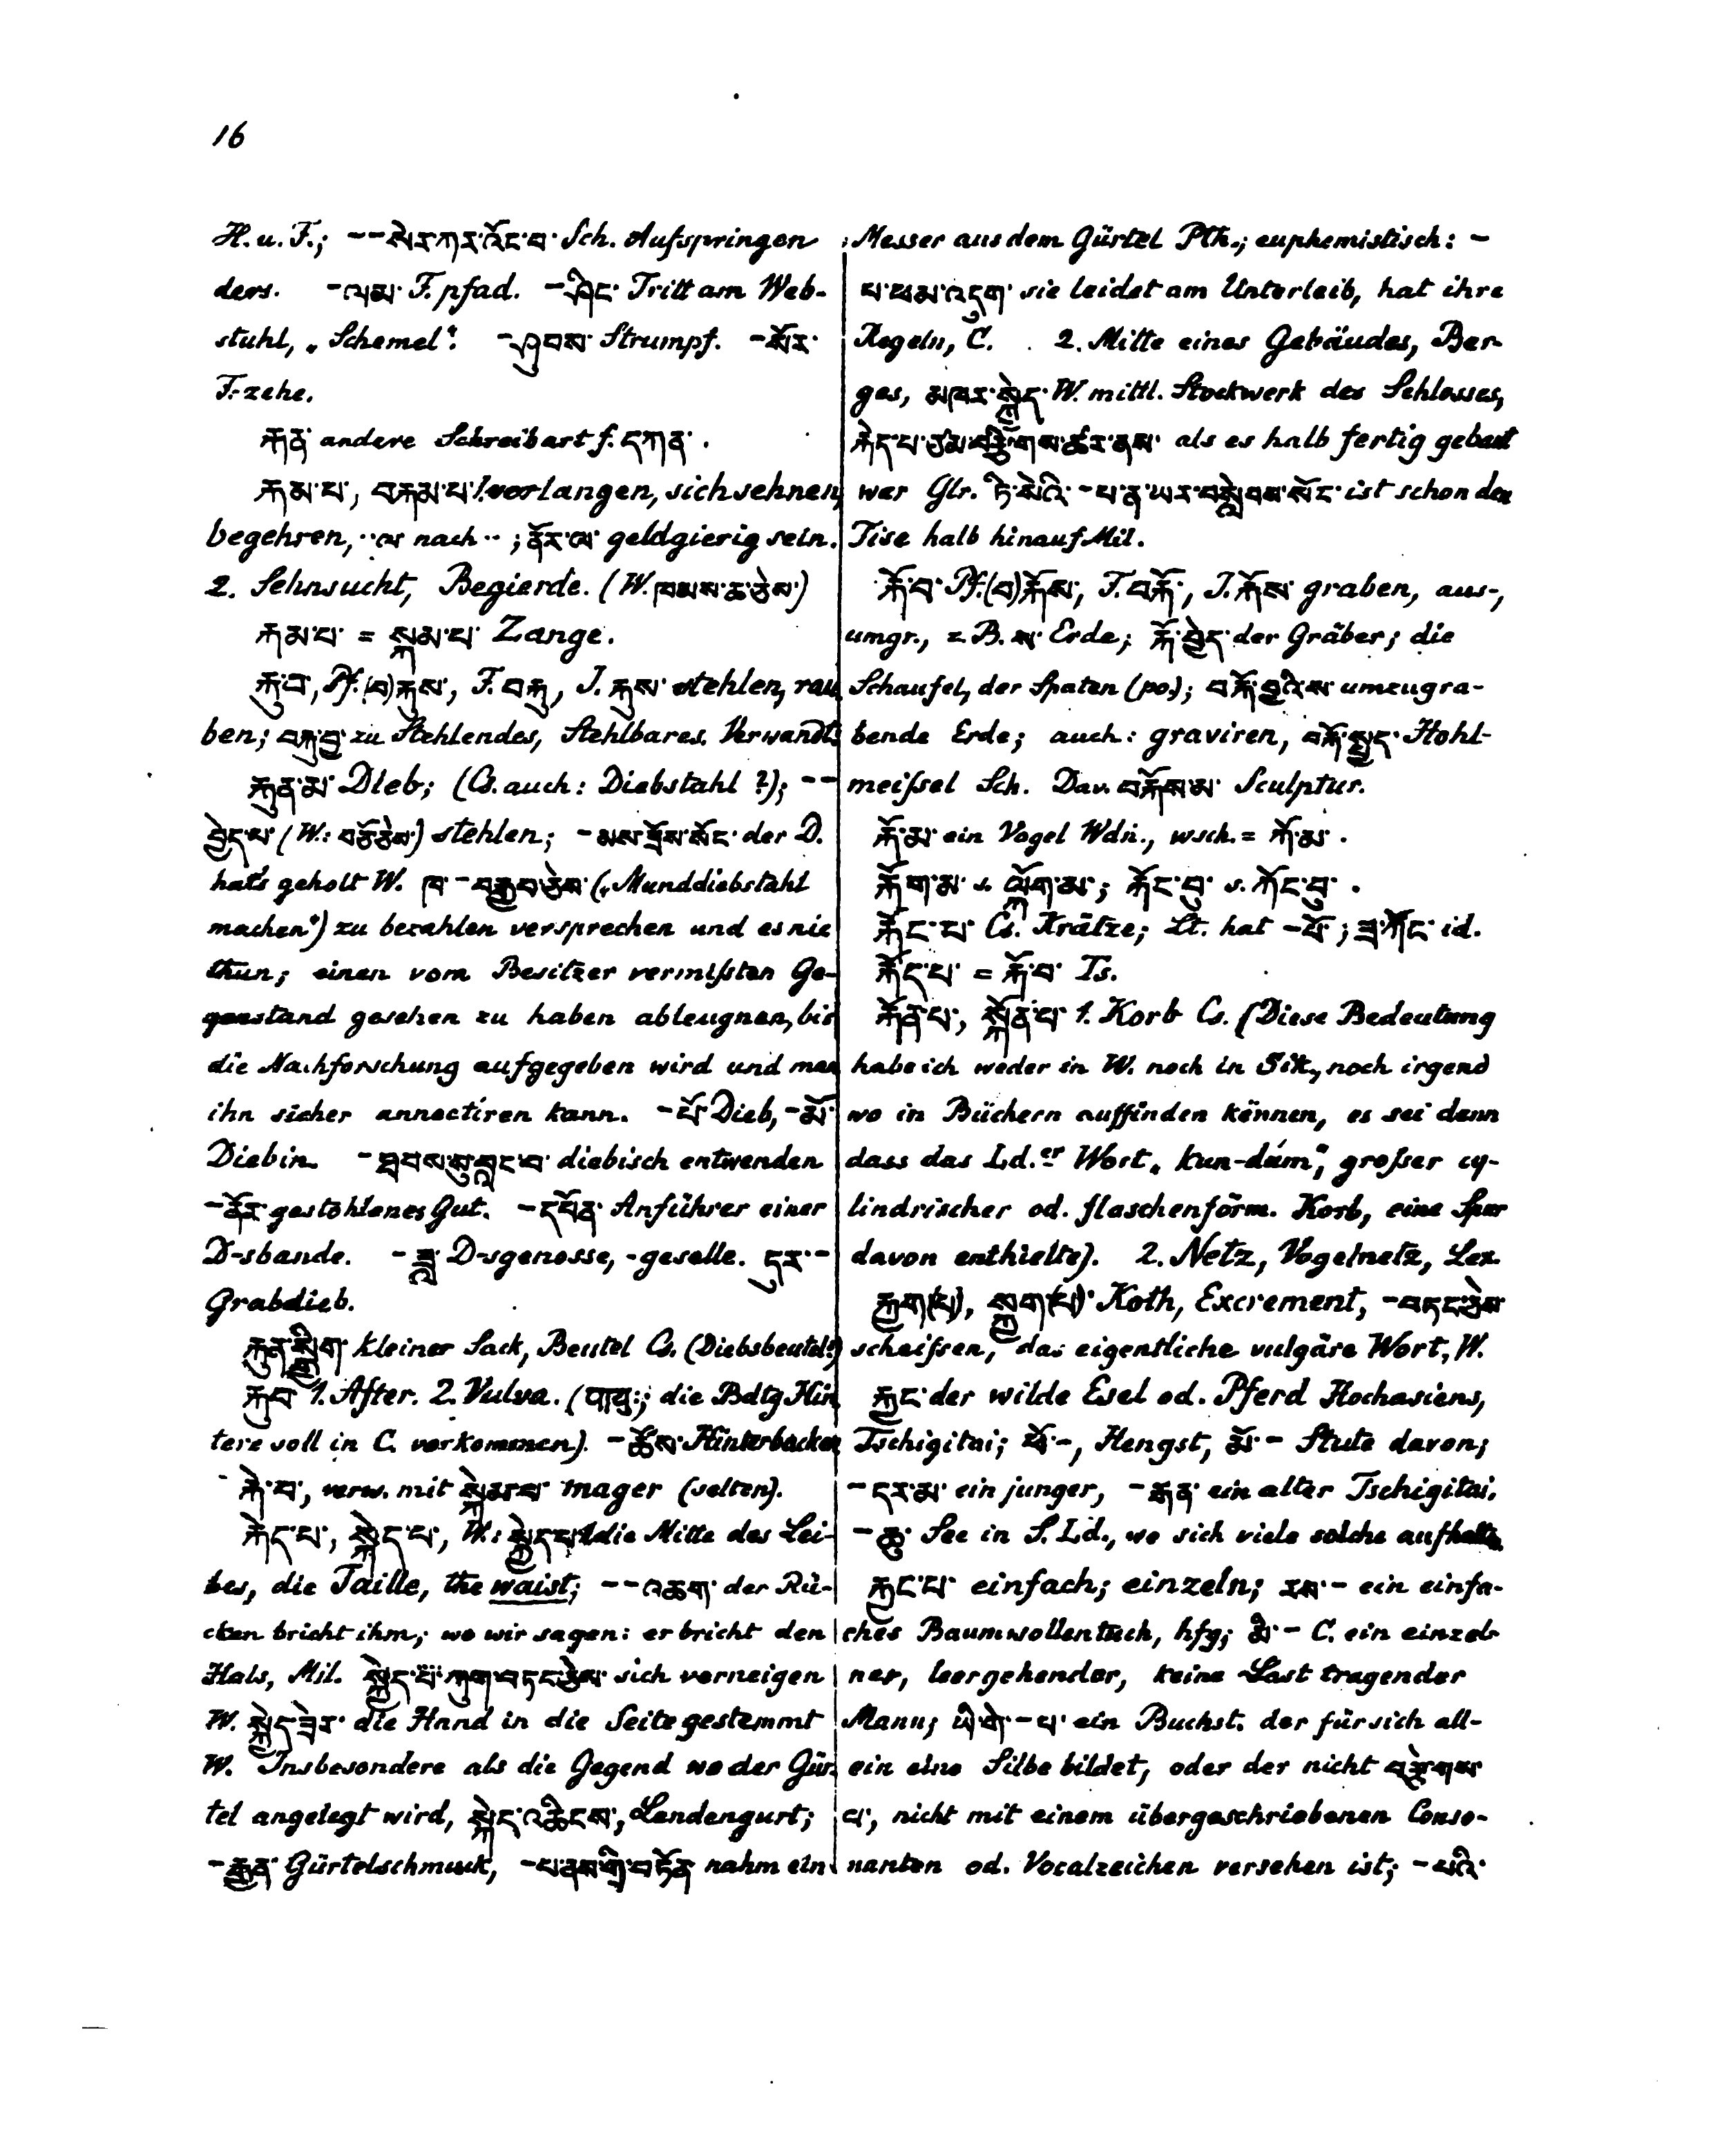 16
H. u. F.; --སེར་ཀར་འོང་བ་ Sch. Aufspringen
ders. -ལམ་ F. pfad. -ཤིང་ Tritt am Web-
stuhl, „Schemel“. -ཤུབས་ Strumpf. -སོར་
F-zehe.
རྐན་ andere Schreibart f. དཀན་.
རྐམ་པ་, བརྐམ་པ་ 1. verlangen, sich sehnen,
begehren, ··ལ་ nach ··; ནོར་ལ་ geldgierig sein.
2. Sehnsucht, Begierde. (W. ཁམས་ཆ་ཅེས་)
རྐམ་པ་ = སྐམ་པ་ Zange.
རྐུ་བ་, Pf. (བ)རྐུས་, F. བརྐུ་, I. རྐུས་ stehlen, rau
ben; བརྐུ་བྱ་ zu Stehlendes, Stehlbares. Verwandt:
རྐུན་མ་ Dieb; (Cs. auch: Diebstahl?); --
བྱེད་པ་ (W.: བཅོ་ཅེས་) stehlen; -མས་ཁྲོས་སོང་ der D.
hat's geholt W. ཁ་-བརྒྱབ་ཅེས་ („Munddiebstahl
machen“) zu bezahlen versprechen und es nie
thun; einen vom Besitzer vermißten Ge-
genstand gesehen zu haben ableugnen, bis
die Nachforschung aufgegeben wird und man
ihn sicher annectiren kann. -པོ་ Dieb, -མོ་
Diebin. -ཐབས་སུ་བླང་བ་ diebisch entwenden
-ནོར་ gestohlenes Gut. -དཔོན་ Anführer einer
D-sbande. -ཟླ་ D-sgenosse, -geselle. དུར་-
Grabdieb.
རྐུན་སྒྱིག་ kleiner Sack, Beutel Cs. (Diebsbeutel?)
རྐུབ་ 1. After. 2. Vulva. (पायुः; die Bdtg Hin
tere soll in C. vorkommen). -ཚོས་ Hinterbacken
རྐེ་བ་, verw. mit སྐེམ་པ་ mager (selten).
རྐེད་པ་, སྐེད་པ་, W.: སྐྱེད་པ་ 1. die Mitte des Lei-
bes, die Taille, the waist; --འཆག་ der Rü-
cken bricht ihm; wo wir sagen: er bricht den
Hals, Mil. སྐྱེད་པོ་ཀུག་བཏང་ཅེས་ sich verneigen
W. སྐྱེད་ཟེར་ die Hand in die Seite gestemmt
W. Insbesondere als die Gegend wo der Gür-
tel angelegt wird, སྐེད་འཆིངས་, Lendengurt;
-རྒྱན་ Gürtelschmuck, -པ་ནས་གྲི་བཏོན་ nahm ein
Messer aus dem Gürtel Pth.; euphemistisch: -
པ་ཕམ་འདུག་ sie leidet am Unterleib, hat ihre
Regeln, C. 2. Mitte eines Gebäudes, Ber-
ges, མཁར་སྐྱེད་ W. mittl. Stockwerk des Schlosses,
རྐེད་པ་ཙམ་བརྩིགས་ཚར་ནས་ als es halb fertig gebaut
war Glr. ཏི་སེའི་-པ་ན་ཡར་བསླེབས་སོང་ ist schon den
Tise halb hinauf Mil.
རྐོ་བ་ Pf. (བ)རྐོས་, F. བརྐོ་, I. རྐོས་ graben, aus-,
umgr., z. B. ས་ Erde; རྐོ་བྱེད་ der Gräber; die
Schaufel, der Spaten (po.); བརྐོ་བྱའི་ས་ umzugra-
bende Erde; auch: graviren, བརྐོ་སྤྱད་ Hohl-
meißel Sch. Dav. བརྐོས་མ་ Sculptur.
རྐོ་མ་ ein Vogel Wdn., wsch. = ཀོ་མ་.
རྐོག་མ་ s. ལྐོག་མ་; རྐོང་བུ་ s. ཀོང་བུ་.
རྐོང་པ་ Cs. Krätze; Lt. hat -པོ་; ཟ་ཀོང་ id.
རྐོད་པ་ = རྐོ་བ་ Ts.
རྐོན་པ་, སྐོན་པ་ 1. Korb Cs. (Diese Bedeutung
habe ich weder in W. noch in Sik., noch irgend
wo in Büchern auffinden können, es sei denn
dass das Ld.er Wort „kun-dúm“, großer cy-
lindrischer od. flaschenförm. Korb, eine Spur
davon enthielte). 2. Netz, Vogelnetz, Lex.
རྐྱག་(པ), སྐྱག་(པ)་ Koth, Excrement, -བཏང་ཅེས་
scheißen, das eigentliche vulgäre Wort, W.
རྐྱང་ der wilde Esel od. Pferd Hochasiens,
Tschigitai; ཕོ་-, Hengst, མོ་- Stute davon;
-དར་མ་ ein junger, -རྒན་ ein alter Tschigitai.
-ཆུ་ See in S. Ld., wo sich viele solche aufhalten
རྐྱང་པ་ einfach; einzeln; རས་- ein einfa-
ches Baumwollentuch, hfg; མི་- C. ein einzel-
ner, leergehender, keine Last tragender
Mann; ཡི་གེ་-པ་ ein Buchst. der für sich all-
ein eine Silbe bildet, oder der nicht བརྩེགས་
པ་, nicht mit einem übergeschriebenen Conso-
nanten od. Vocalzeichen versehen ist; -པའི་